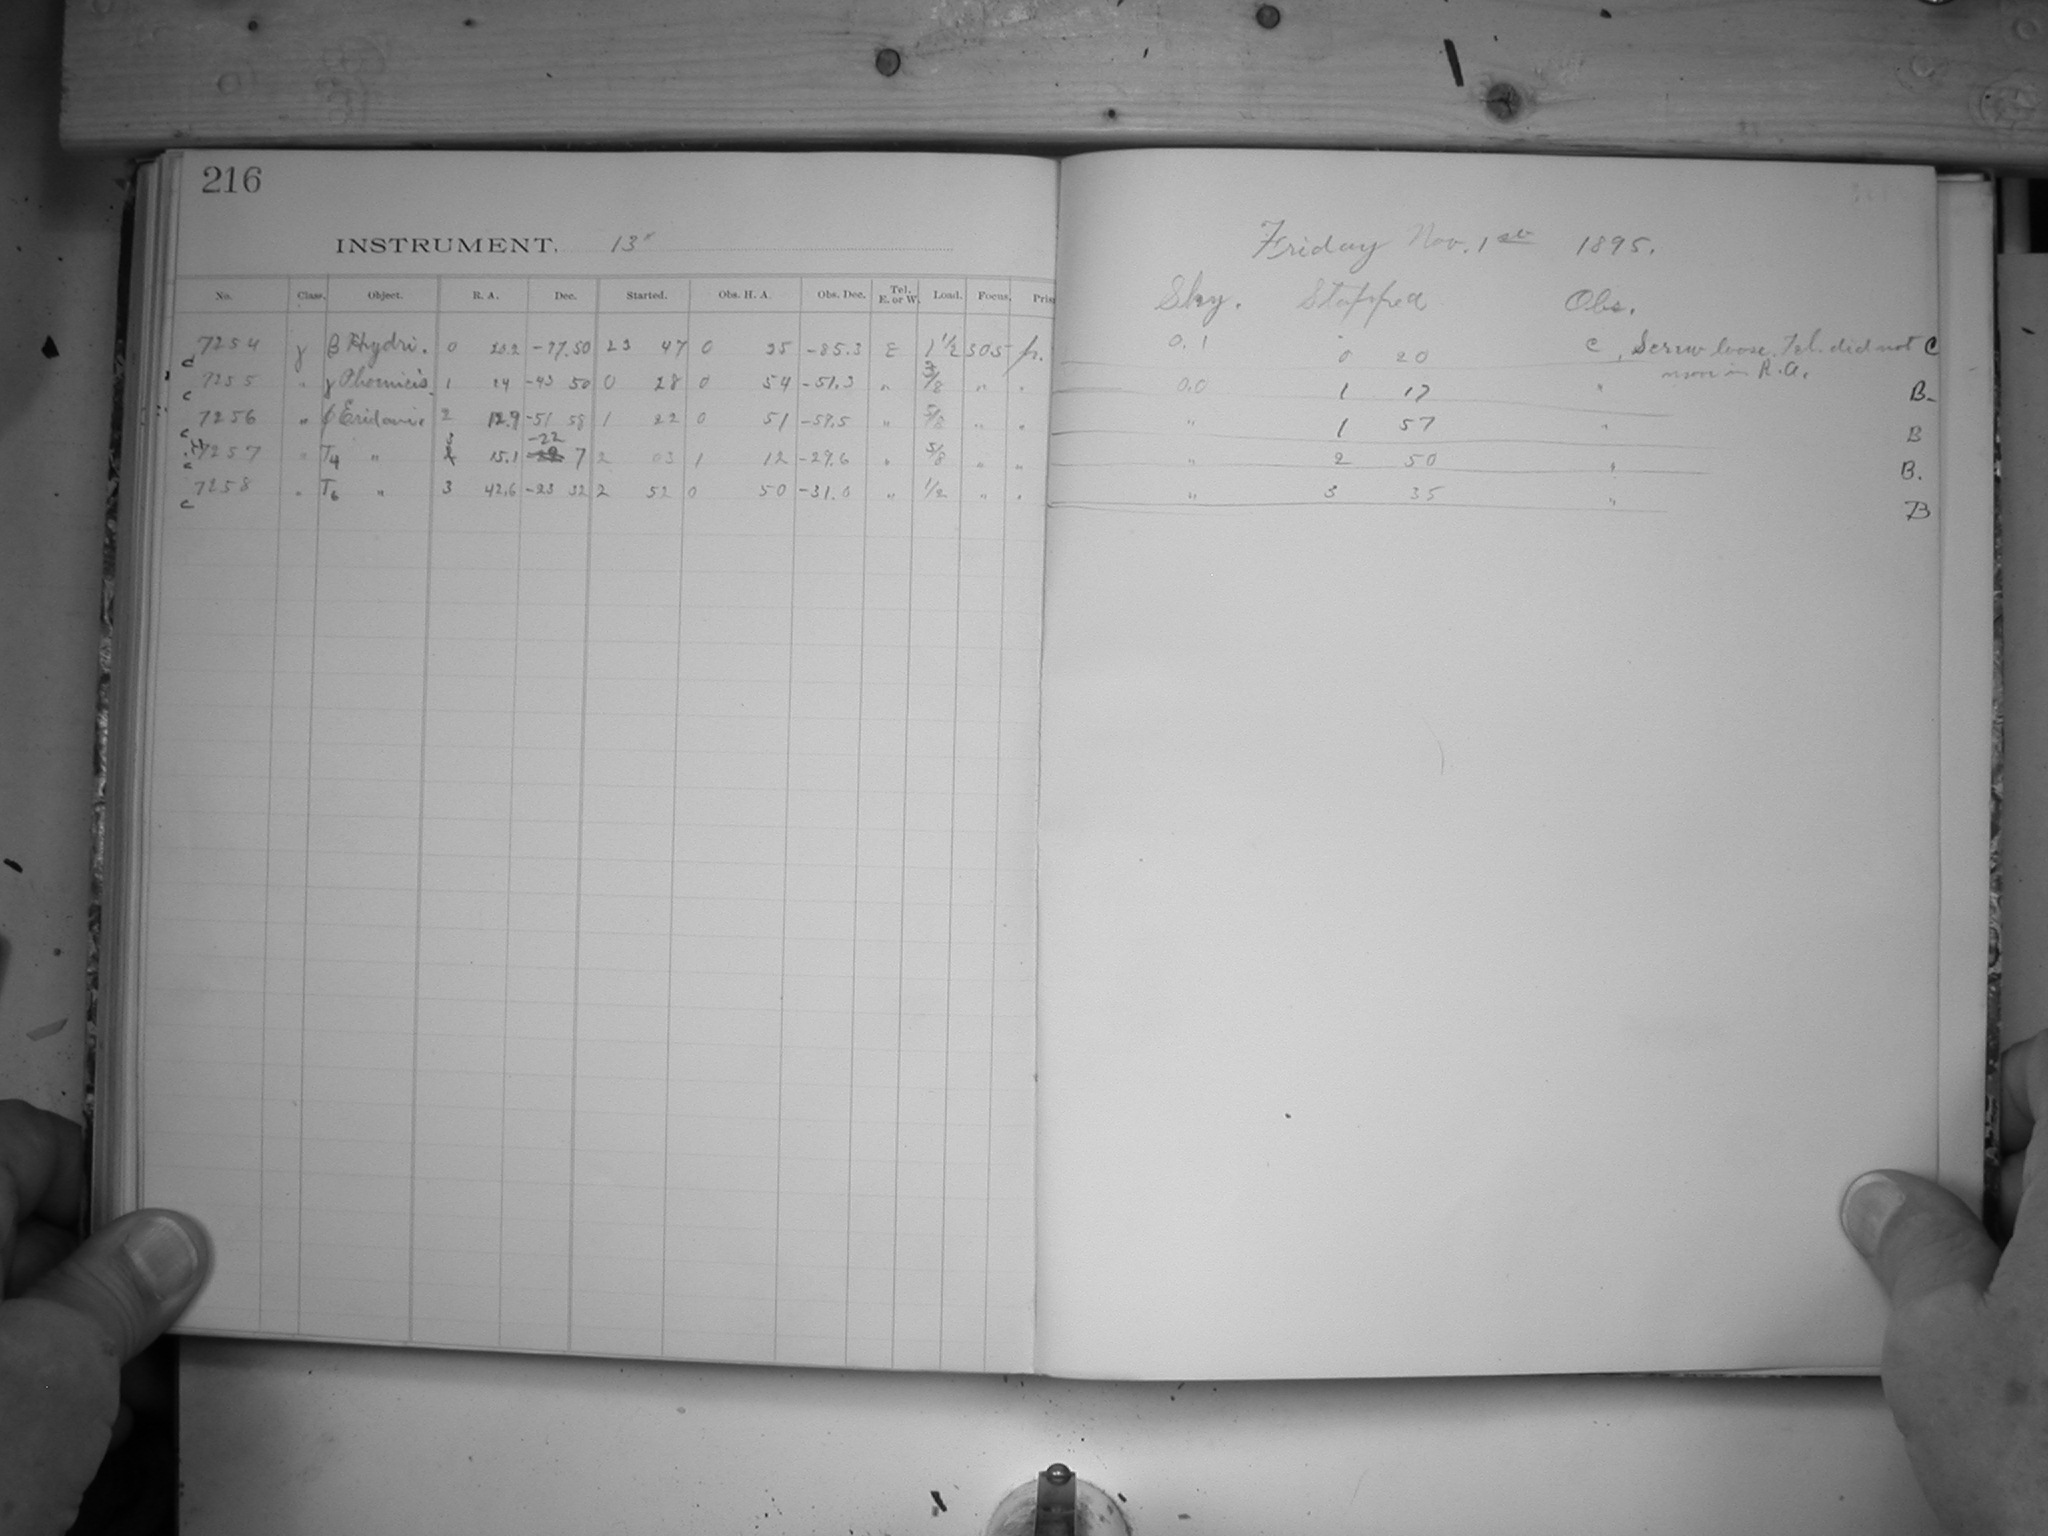 216
INSTRUMENT. 13"
Friday Nov. 1st 1895.
No. Class. Object. R. A. Dec. Started. Obs. H. A. Obs. Dec. Tel. E. or W. Load. Focus.
Sky. Stopped Obs.
7254 γ β Hydri. 0 20.2 -77.50 23 47 0 25 -85.3 E 1 1/2 505 pr. 0.1 0 20 C, Screw loose. Tel. did not C
move in R.A.
c 7255 " γ Phoenicis 1 24 -43 50 0 28 0 54 -51.3 " 3/8 " " 0.0 1 17 " B-
c 7256 " φ Eridani. 2 12.9 -51 58 1 22 0 51 -59.5 " 5/8 " " " 1 57 " B
c 7257 " T4 " 3 15.1 -22 7 2 03 1 12 -29.6 " 5/8 " " " 2 50 " B.
c 7258 " T6 " 3 42.6 -23 32 2 52 0 50 -31.0 " 1/2 " " " 3 35 " B